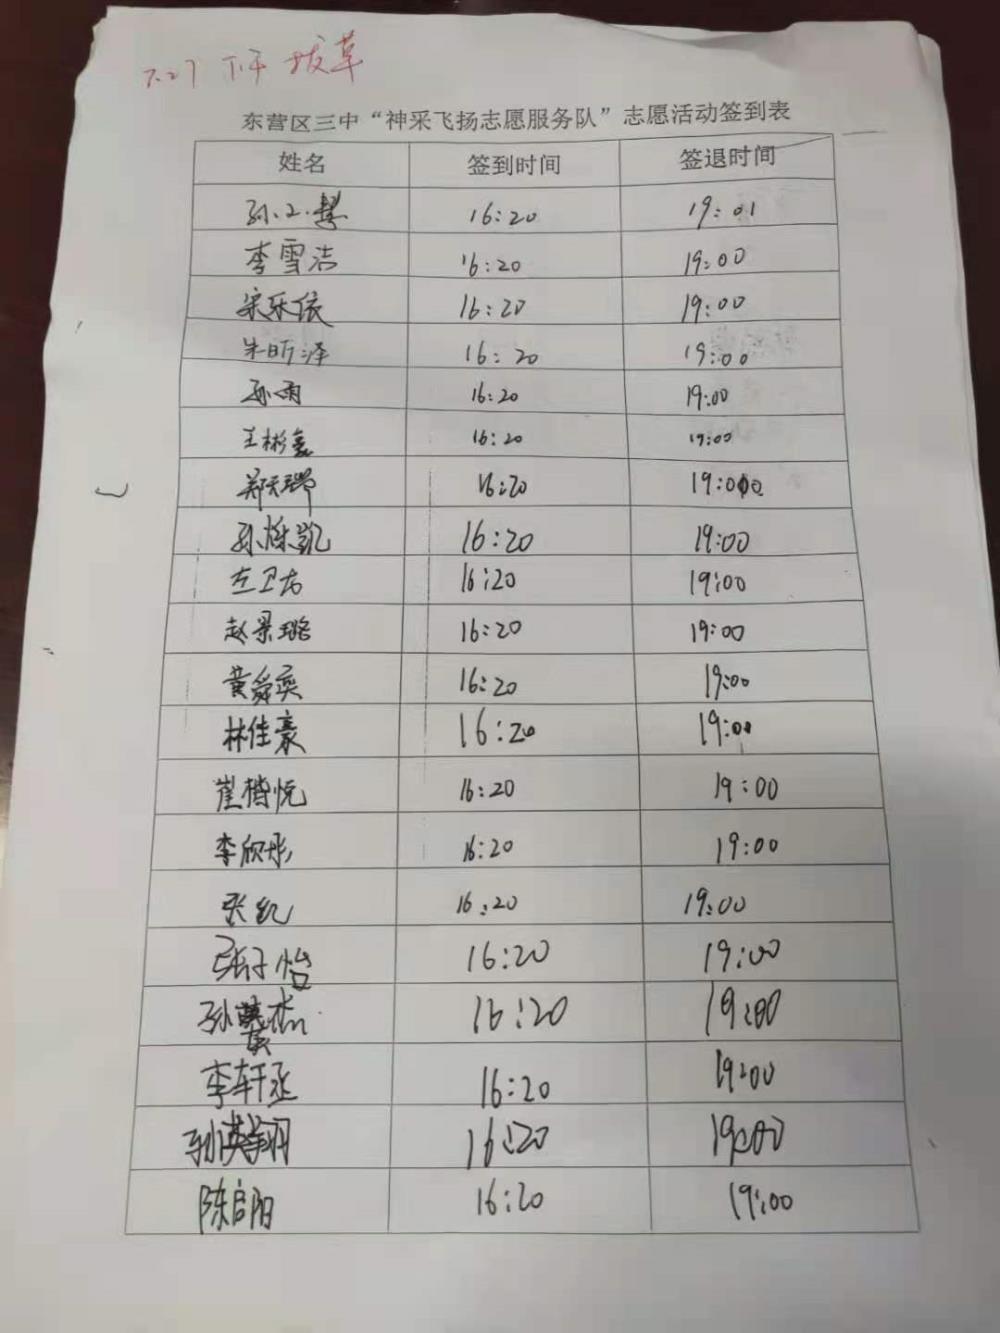 7.27 下午 拔草
东营区三中“神采飞扬志愿服务队”志愿活动签到表
姓名 签到时间 签退时间
16:20 19:01
李雪洁 16:20 19:00
宋乐依 16:20 19:00
朱昕泽 16:20 19:00
孙雨 16:20 19:00
王彬鑫 16:20 19:00
郑天瑞 16:20 19:00
孙烁凯 16:20 19:00
左卫古 16:20 19:00
赵景璐 16:20 19:00
黄舜奕 16:20 19:00
林佳豪 16:20 19:00
崔楷悦 16:20 19:00
李欣彤 16:20 19:00
张凯 16:20 19:00
张子怡 16:20 19:00
孙 16:20 19:00
李轩丞 16:20 19:00
孙英翔 16:20 19:00
陈启阳 16:20 19:00